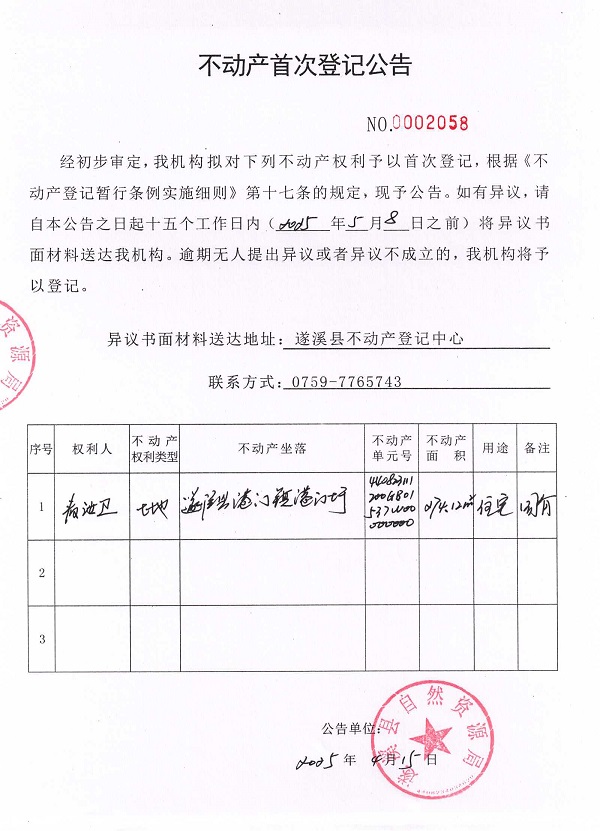 不动产首次登记公告
NO.0002058
经初步审定，我机构拟对下列不动产权利予以首次登记，根据《不
动产登记暂行条例实施细则》第十七条的规定，现予公告。如有异议，请
自本公告之日起十五个工作日内（2025 年 5 月 8 日之前）将异议书
面材料送达我机构。逾期无人提出异议或者异议不成立的，我机构将予
以登记。
异议书面材料送达地址：遂溪县不动产登记中心
联系方式：0759-7765743
序号 权利人 不动产权利类型 不动产坐落 不动产单元号 不动产面积 用途 备注
1 土地 遂溪县 274.12m² 住宅 国有
2
3
公告单位：
2025 年 4 月 15 日
遂溪县自然资源局
资源局